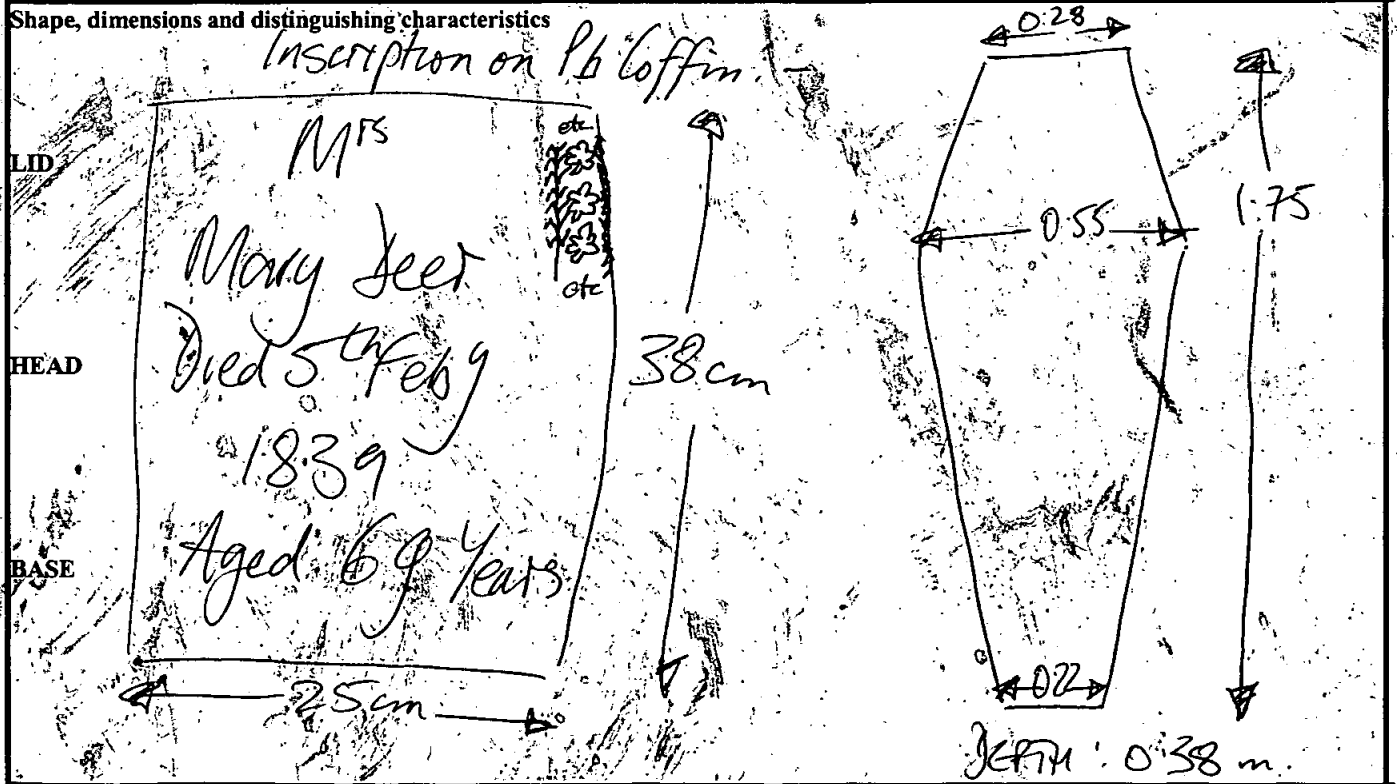 Shape, dimensions and distinguishing characteristics
Inscription on Pb Coffin.
LID
HEAD
BASE
Mrs
Mary Deer
Died 5th Feby
1839
Aged 69 Years
etc
etc
38cm
25cm
0.28
0.55
1.75
0.22
DEPTH: 0.38 m.